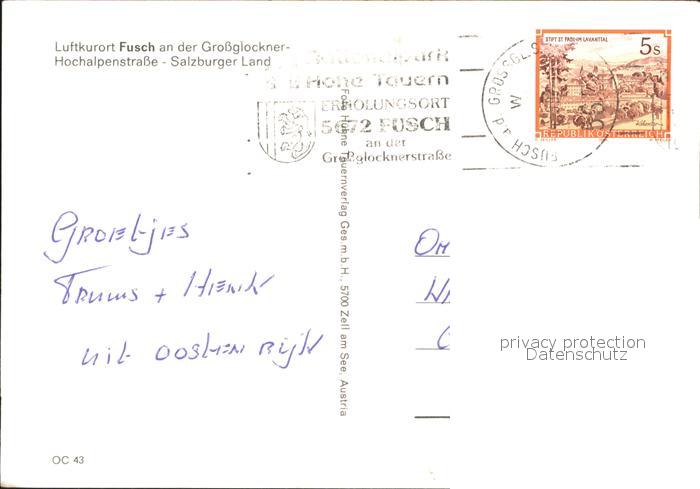 Luftkurort Fusch an der Großglockner-
Hochalpenstraße - Salzburger Land
Nationalpark
Hohe Tauern
ERHOLUNGSORT
5672 FUSCH
an der
Großglocknerstraße
STIFT ST. PAUL IM LAVANTTAL
5s
REPUBLIK ÖSTERREICH
FUSCH
Foto Hühne Tauernverlag Ges.m.b.H., 5700 Zell am See, Austria
Groetjes
Truus + Henk
uit Oostenrijk
privacy protection
Datenschutz
OC 43